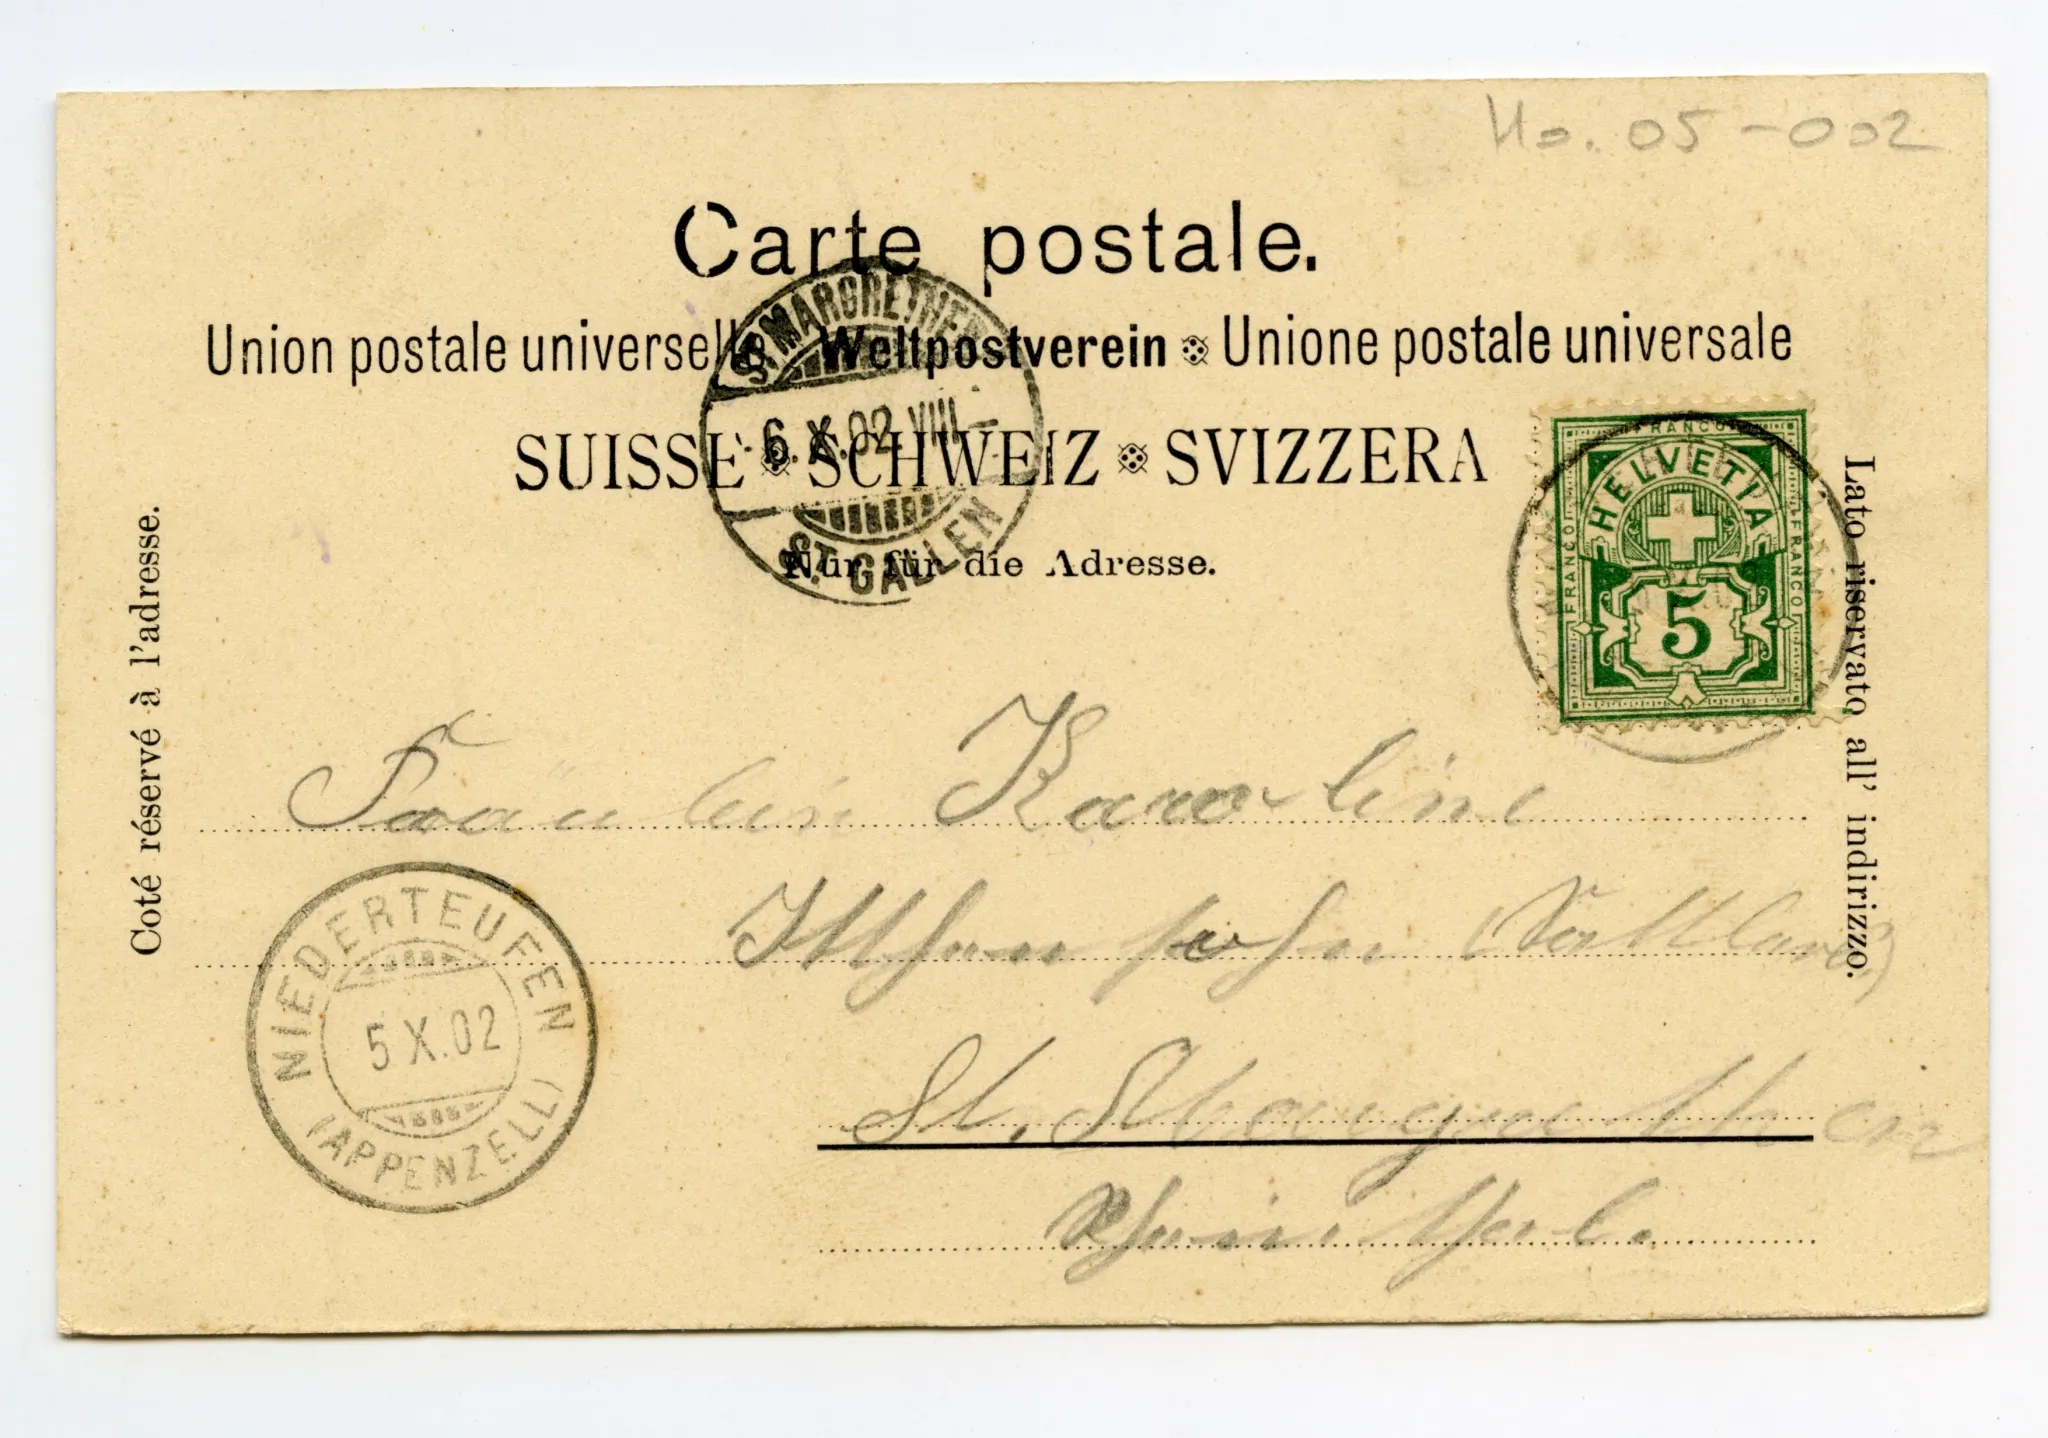 Ho. 05-002
Carte postale.
Union postale universelle. Weltpostverein Unione postale universale
SUISSE SCHWEIZ SVIZZERA
Nur für die Adresse.
Coté réservé à l'adresse.
Lato riservato all' indirizzo.
ST. MARGRETHEN
6.X.02.VIII
ST. GALLEN
FRANCO
HELVETIA
FRANCO
FRANCO
5
Fräulein Karoline
St. Margrethen
Rheinthal.
NIEDERTEUFEN
5 X.02
(APPENZELL)